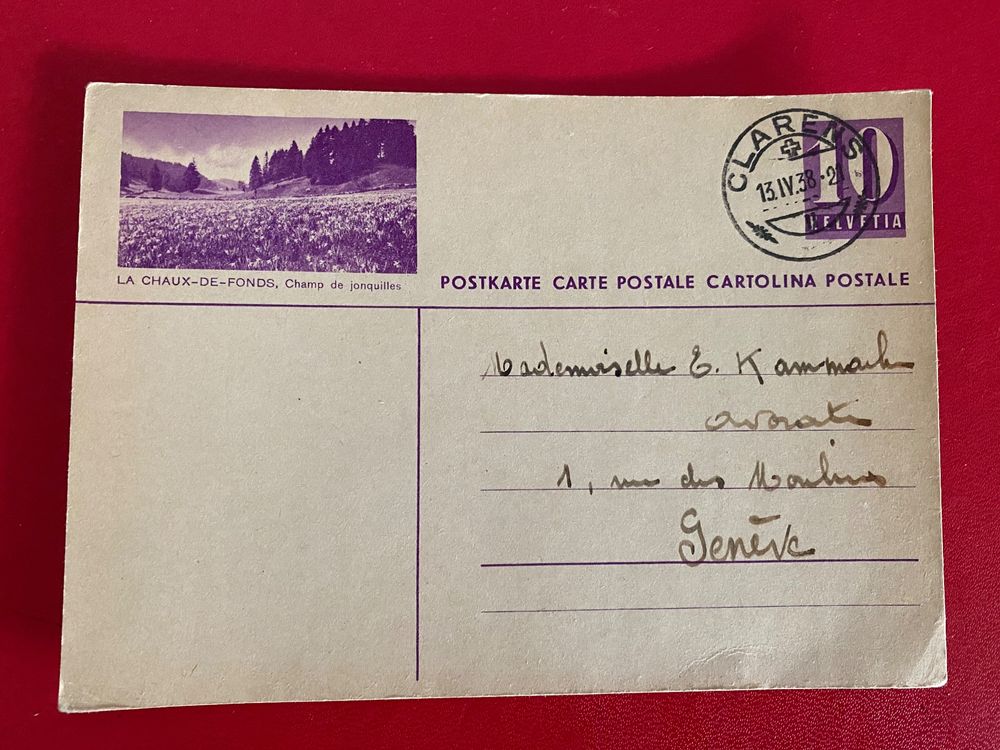 LA CHAUX-DE-FONDS, Champ de jonquilles
CLARENS
13.IV.38
10
HELVETIA
POSTKARTE CARTE POSTALE CARTOLINA POSTALE
Mademoiselle E. Kammach
avocate
1, rue des Moulins
Genève